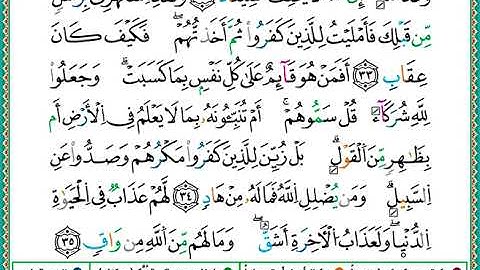 مِّن قَبْلِكَ فَأَمْلَيْتُ لِلَّذِينَ كَفَرُوا۟ ثُمَّ أَخَذْتُهُمْ ۖ فَكَيْفَ كَانَ
عِقَابِ ﴿٣٣﴾ أَفَمَنْ هُوَ قَآئِمٌ عَلَىٰ كُلِّ نَفْسٍۭ بِمَا كَسَبَتْ ۗ وَجَعَلُوا۟
لِلَّهِ شُرَكَآءَ قُلْ سَمُّوهُمْ ۚ أَمْ تُنَبِّـُٔونَهُۥ بِمَا لَا يَعْلَمُ فِى ٱلْأَرْضِ أَم
بِظَـٰهِرٍ مِّنَ ٱلْقَوْلِ ۗ بَلْ زُيِّنَ لِلَّذِينَ كَفَرُوا۟ مَكْرُهُمْ وَصَدُّوا۟ عَنِ
ٱلسَّبِيلِ ۗ وَمَن يُضْلِلِ ٱللَّهُ فَمَا لَهُۥ مِنْ هَادٍ ﴿٣٤﴾ لَّهُمْ عَذَابٌ فِى ٱلْحَيَوٰةِ
ٱلدُّنْيَا ۖ وَلَعَذَابُ ٱلْـَٔاخِرَةِ أَشَقُّ ۖ وَمَا لَهُم مِّنَ ٱللَّهِ مِن وَاقٍ ﴿٣٥﴾